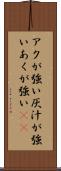 アクが強い灰汁が強
いあくが強い